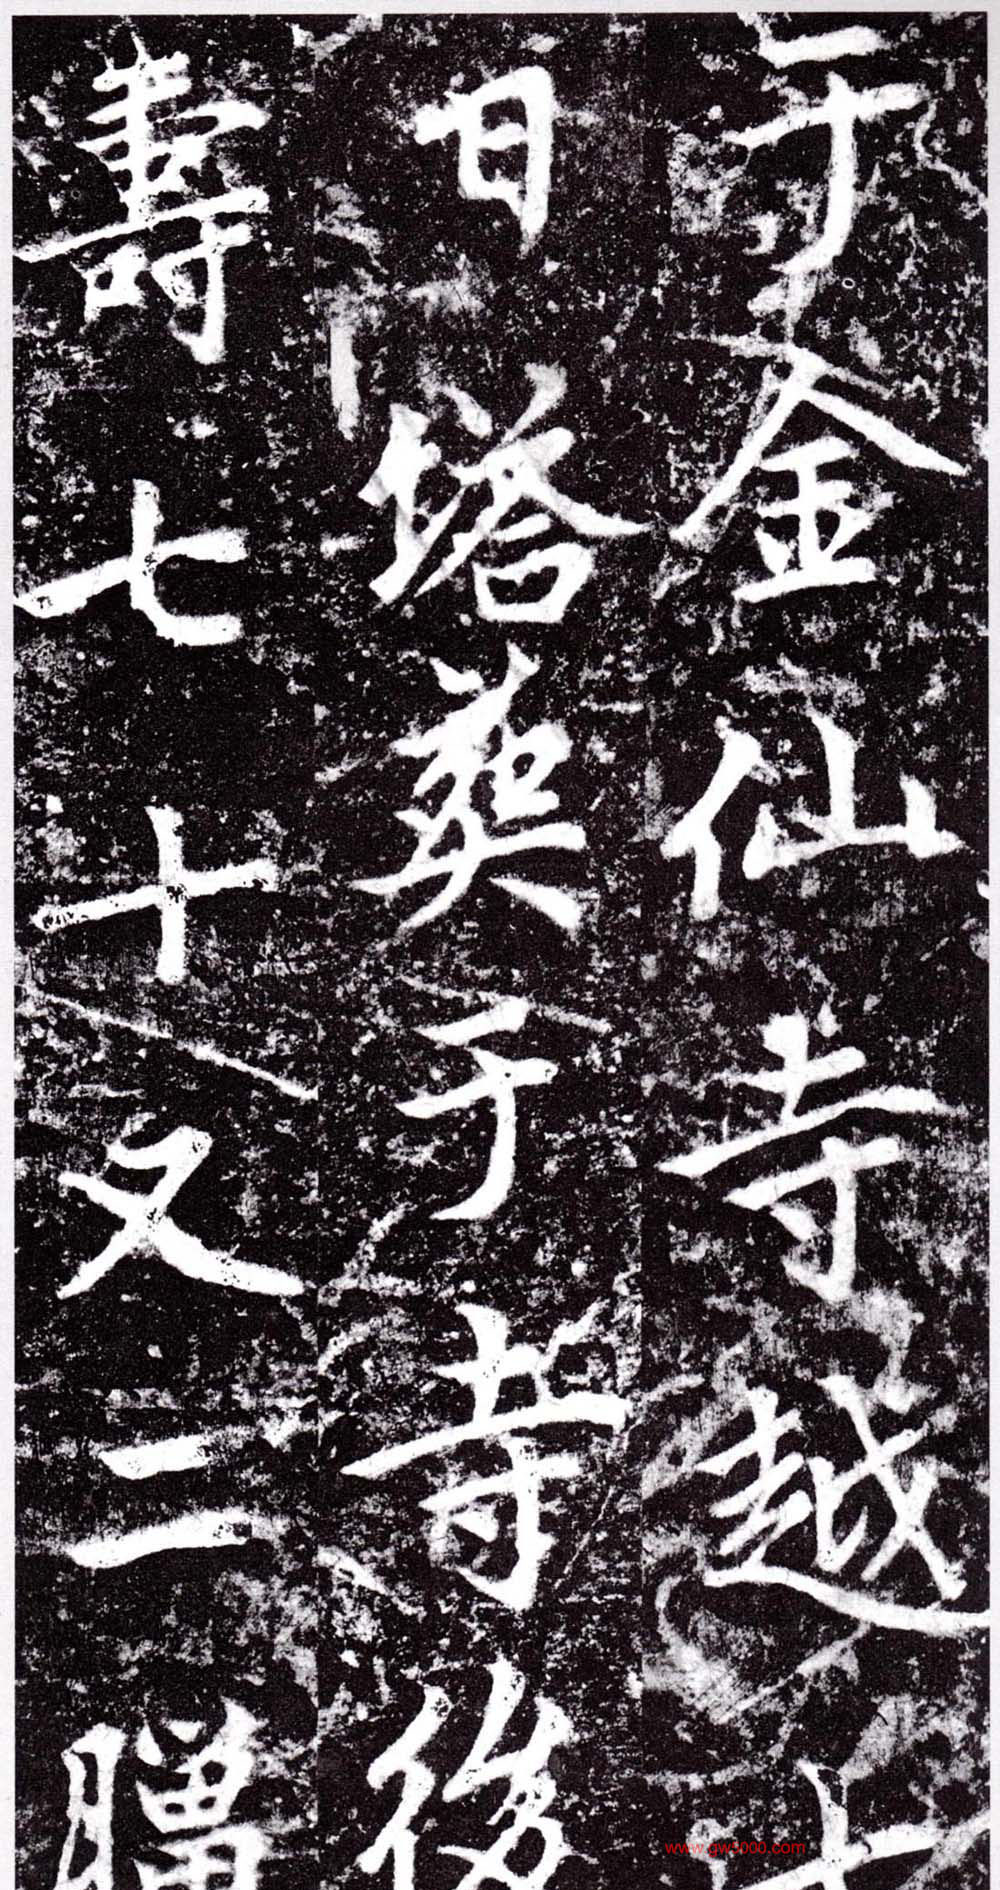 于金仙寺越十
日塔葬于寺後
壽七十又二臘
www.gw5000.com